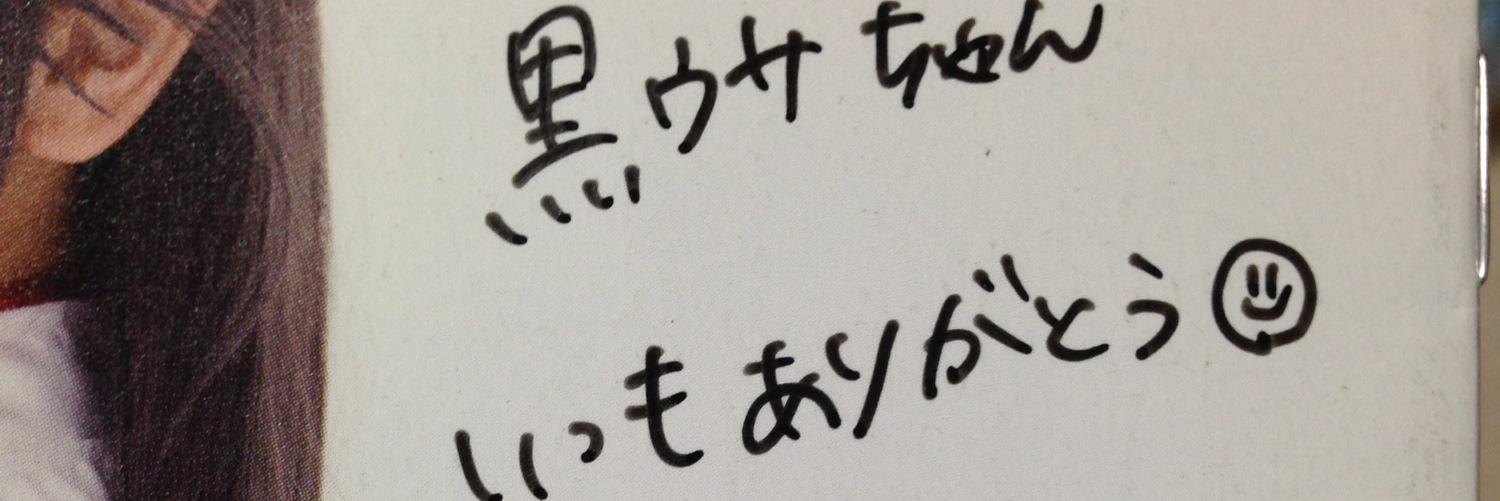 黒ウサちゃん
いつもありがとう